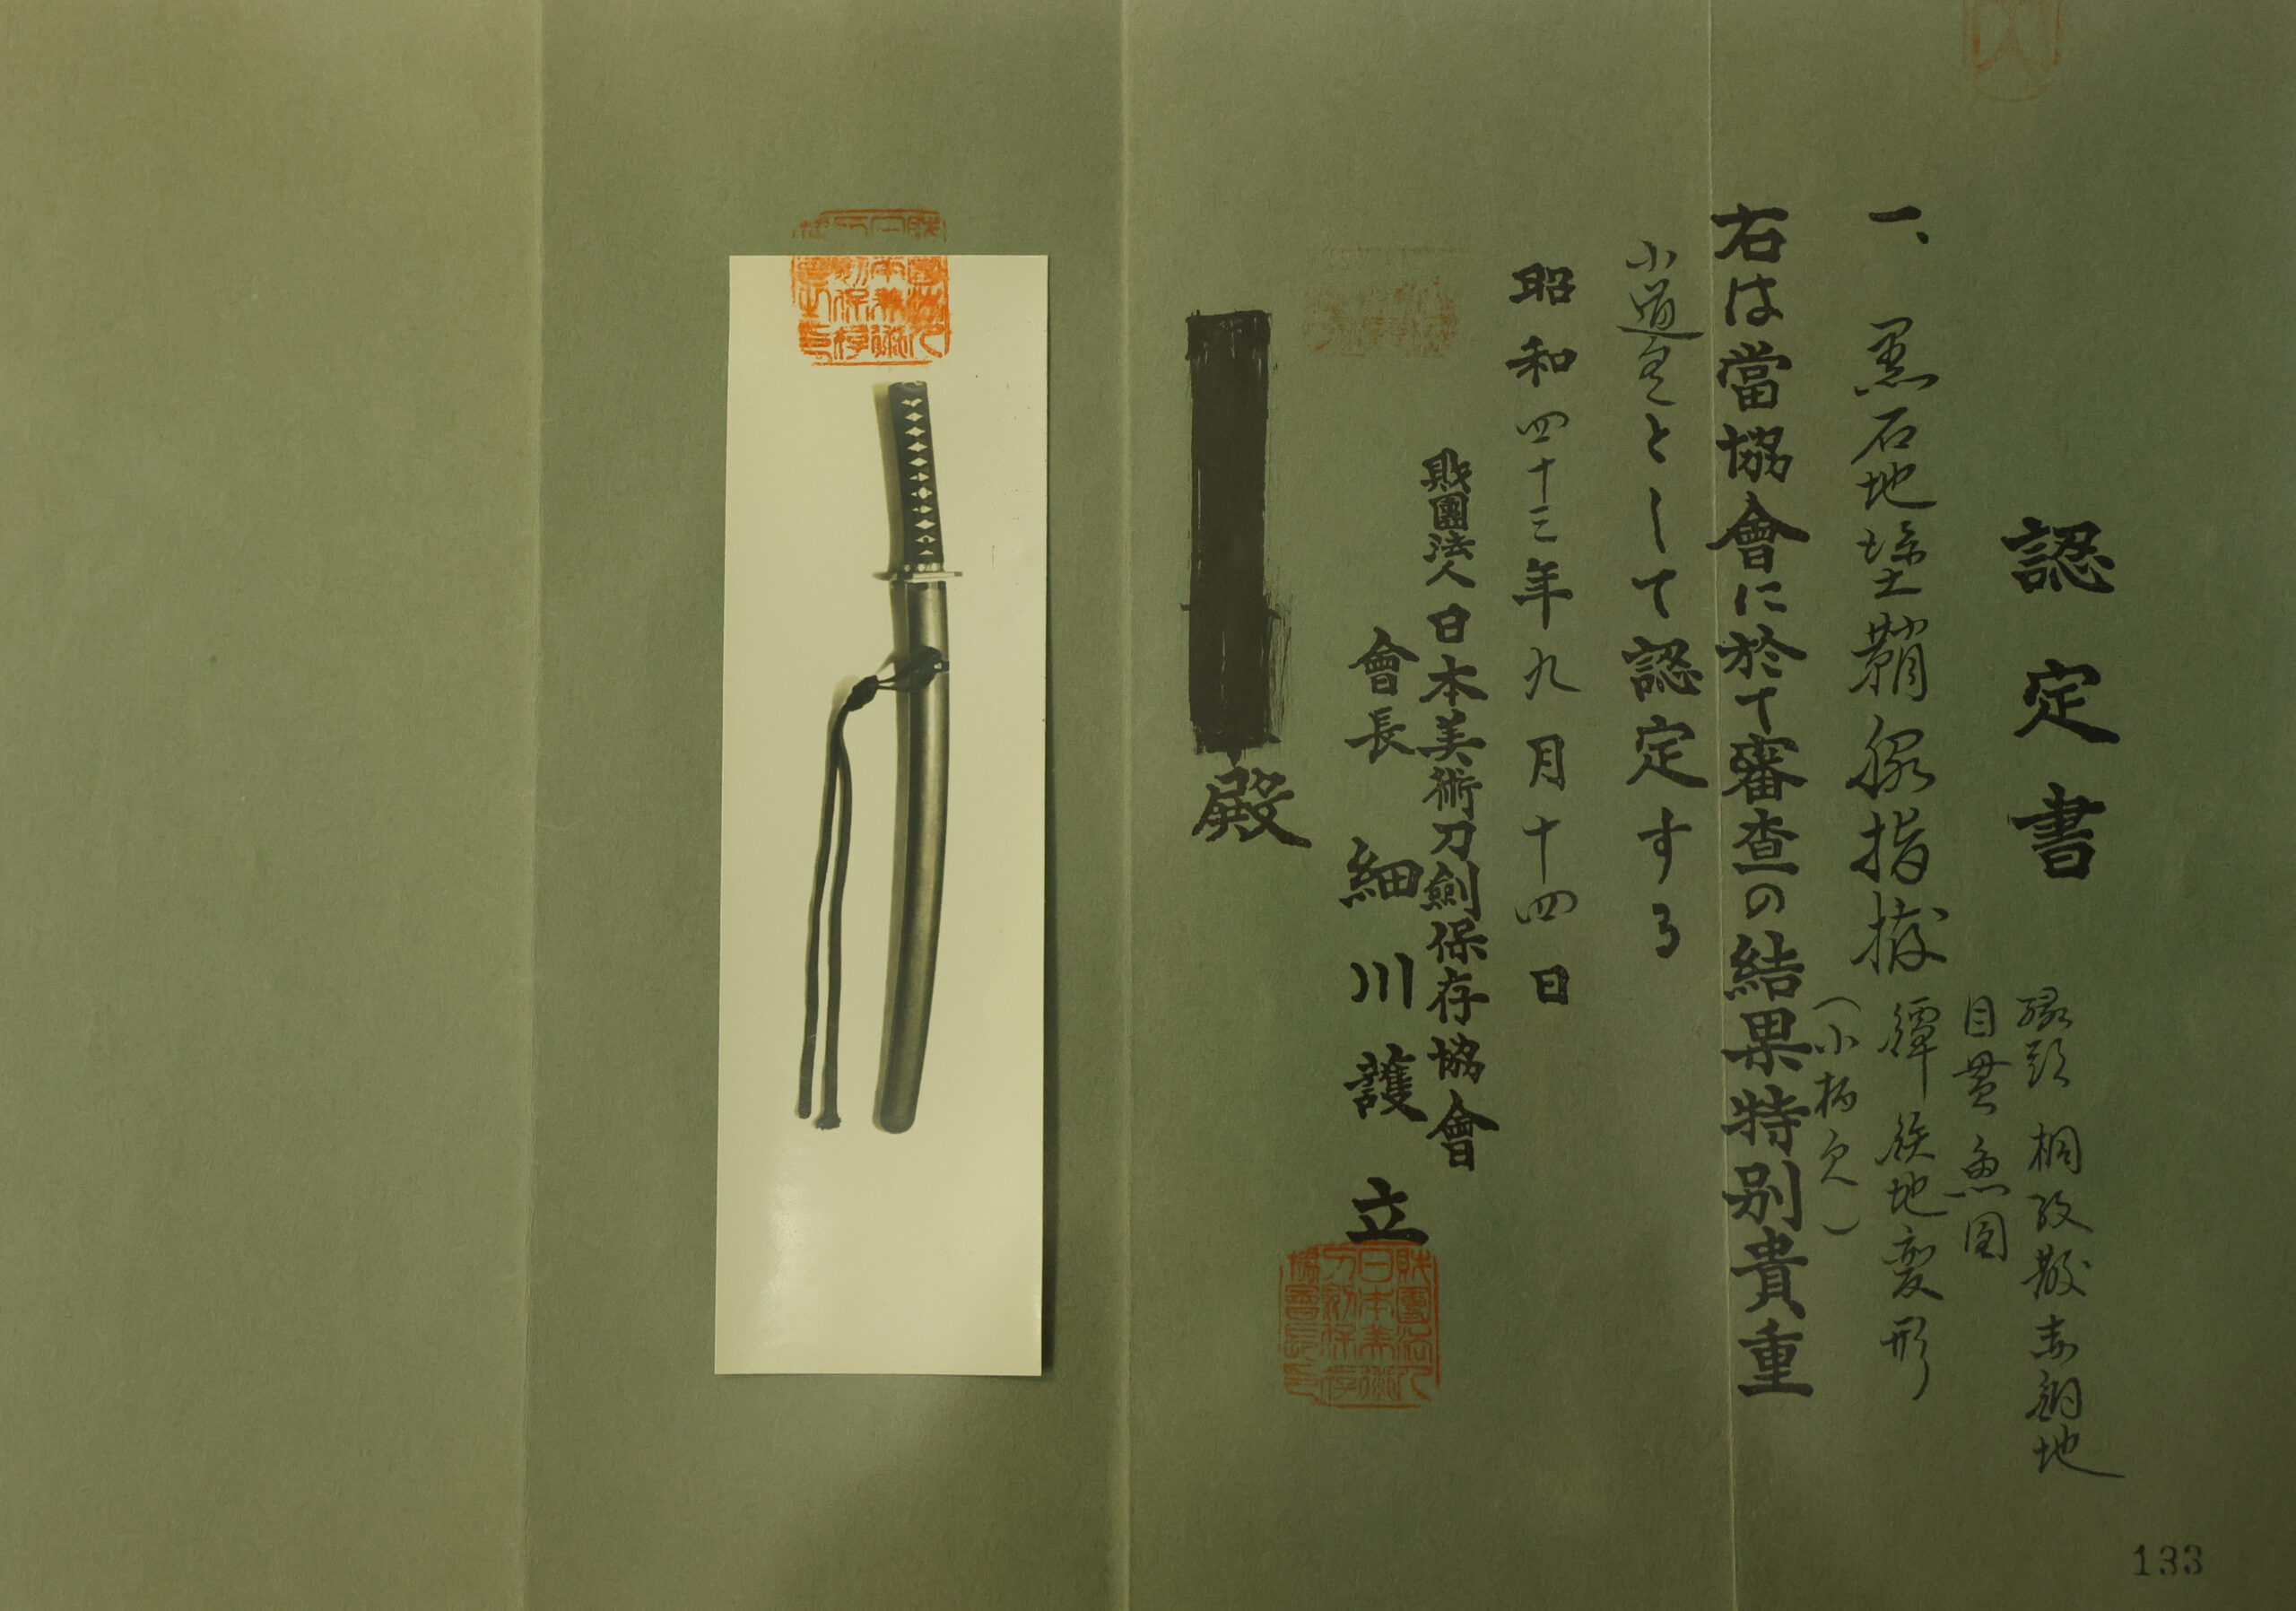 認定書
一、黒石地塗鞘脇指拵
縁頭 桐紋散赤銅地
目貫 魚図
鐔 鉄地変形
（小柄欠）
右は當協會に於て審査の結果特別貴重
小道具として認定する
昭和四十三年九月十四日
財團法人日本美術刀劍保存協會
會長 細川護立
殿
133